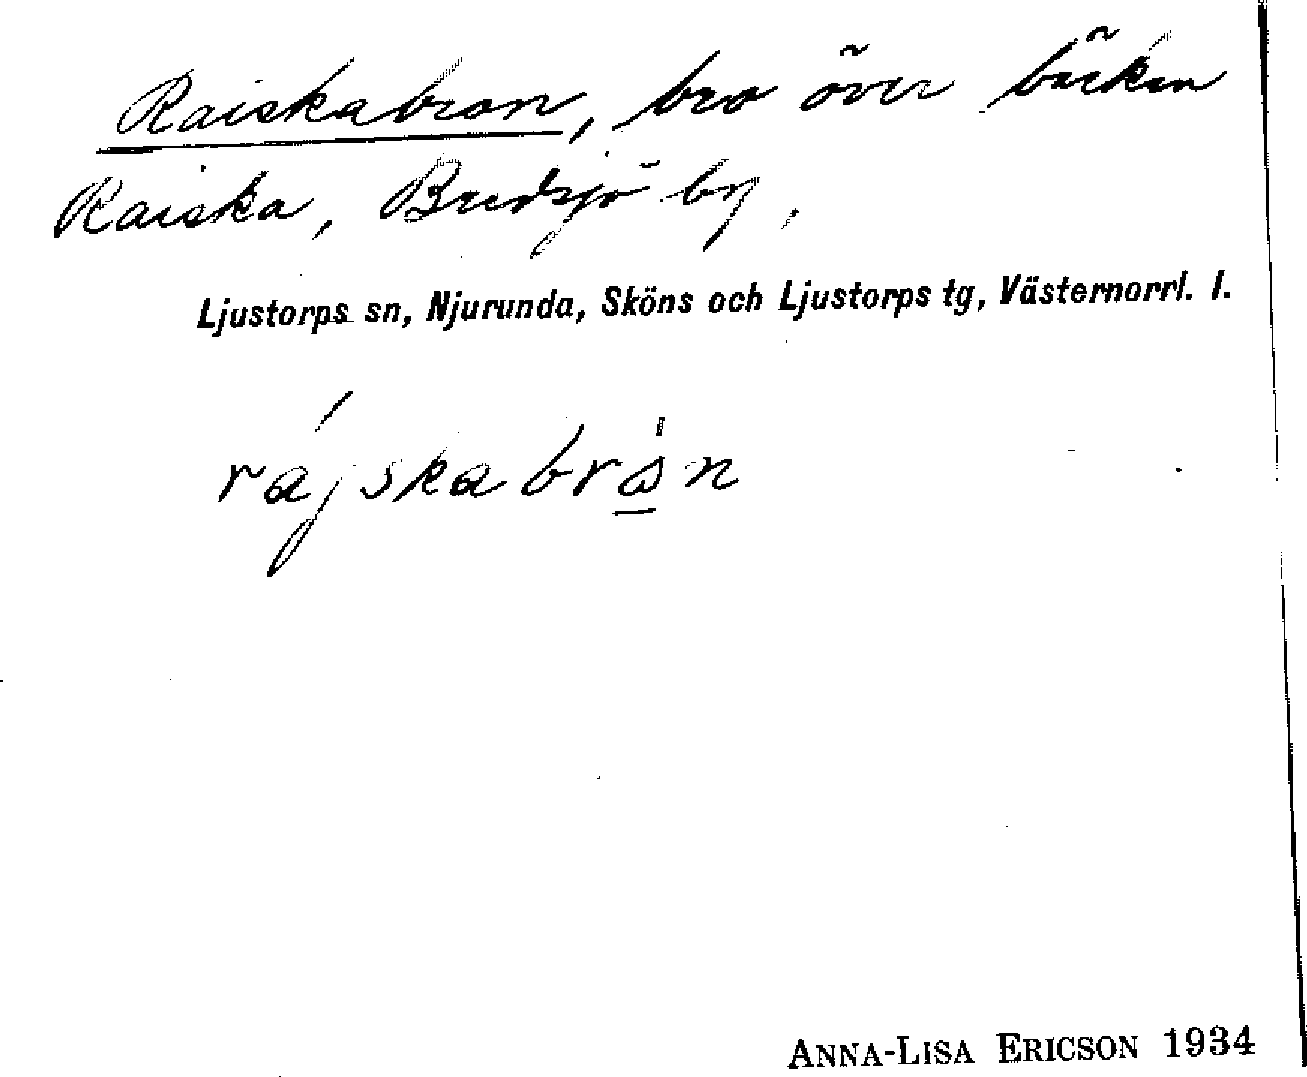 Raiskabron, bro över bäcken
Raiska, Bredsjö by,
Ljustorps sn, Njurunda, Sköns och Ljustorps tg, Västernorrl. l.
rájskabrån
ANNA-LISA ERICSON 1934